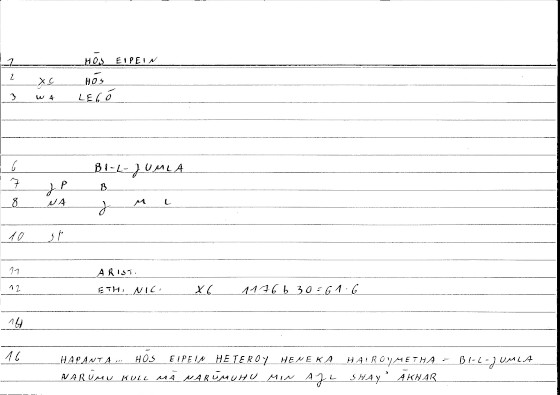 1 HŌS EIPEIN
2 XC HŌS
3 WA LEGŌ
6 BI-L-JUMLA
7 JP B
8 NA J M L
10 st
11 ARIST.
12 ETH. NIC. X6 1176 b 30 = 61.6
14
16 HAPANTA... HŌS EIPEIN HETEROY HENEKA HAIROYMETHA - BI-L-JUMLA
NARŪMU KULL MĀ NARŪMUHU MIN AJL SHAY' ĀKHAR